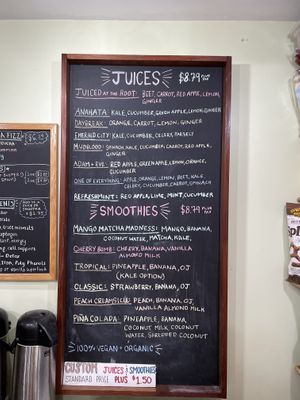 JUICES $8.79
JUICED AT THE ROOT: BEET, CARROT, RED APPLE, LEMON,
GINGER
ANAHATA: KALE, CUCUMBER, GREEN APPLE, LEMON, GINGER
DAYBREAK: ORANGE, CARROT, LEMON, GINGER
EMERALD CITY: KALE, CUCUMBER, CELERY, PARSELY
MUDBLOOD: SPINACH, KALE, CUCUMBER, CARROT, RED APPLE,
GINGER
ADAM + EVE: RED APPLE, GREEN APPLE, LEMON, ORANGE,
CUCUMBER
ONE OF EVERYTHING: APPLE, ORANGE, LEMON, BEET, KALE,
CELERY, CUCUMBER, CARROT, SPINACH
REFRESHMINT: RED APPLE, LIME, MINT, CUCUMBER
SMOOTHIES $8.79
MANGO MATCHA MADNESS: MANGO, BANANA,
COCONUT WATER, MATCHA, KALE,
CHERRY BOMB: CHERRY, BANANA, VANILLA
ALMOND MILK
TROPICAL: PINEAPPLE, BANANA, OJ
(KALE OPTION)
CLASSIC: STRAWBERRY, BANANA, OJ
PEACH CREAMSICLE: PEACH, BANANA, OJ,
VANILLA ALMOND MILK
PIÑA COLADA: PINEAPPLE, BANANA,
COCONUT MILK, COCONUT
WATER, SHREDDED COCONUT
100% VEGAN + ORGANIC
CUSTOM JUICES & SMOOTHIES
STANDARD PRICE PLUS $1.50